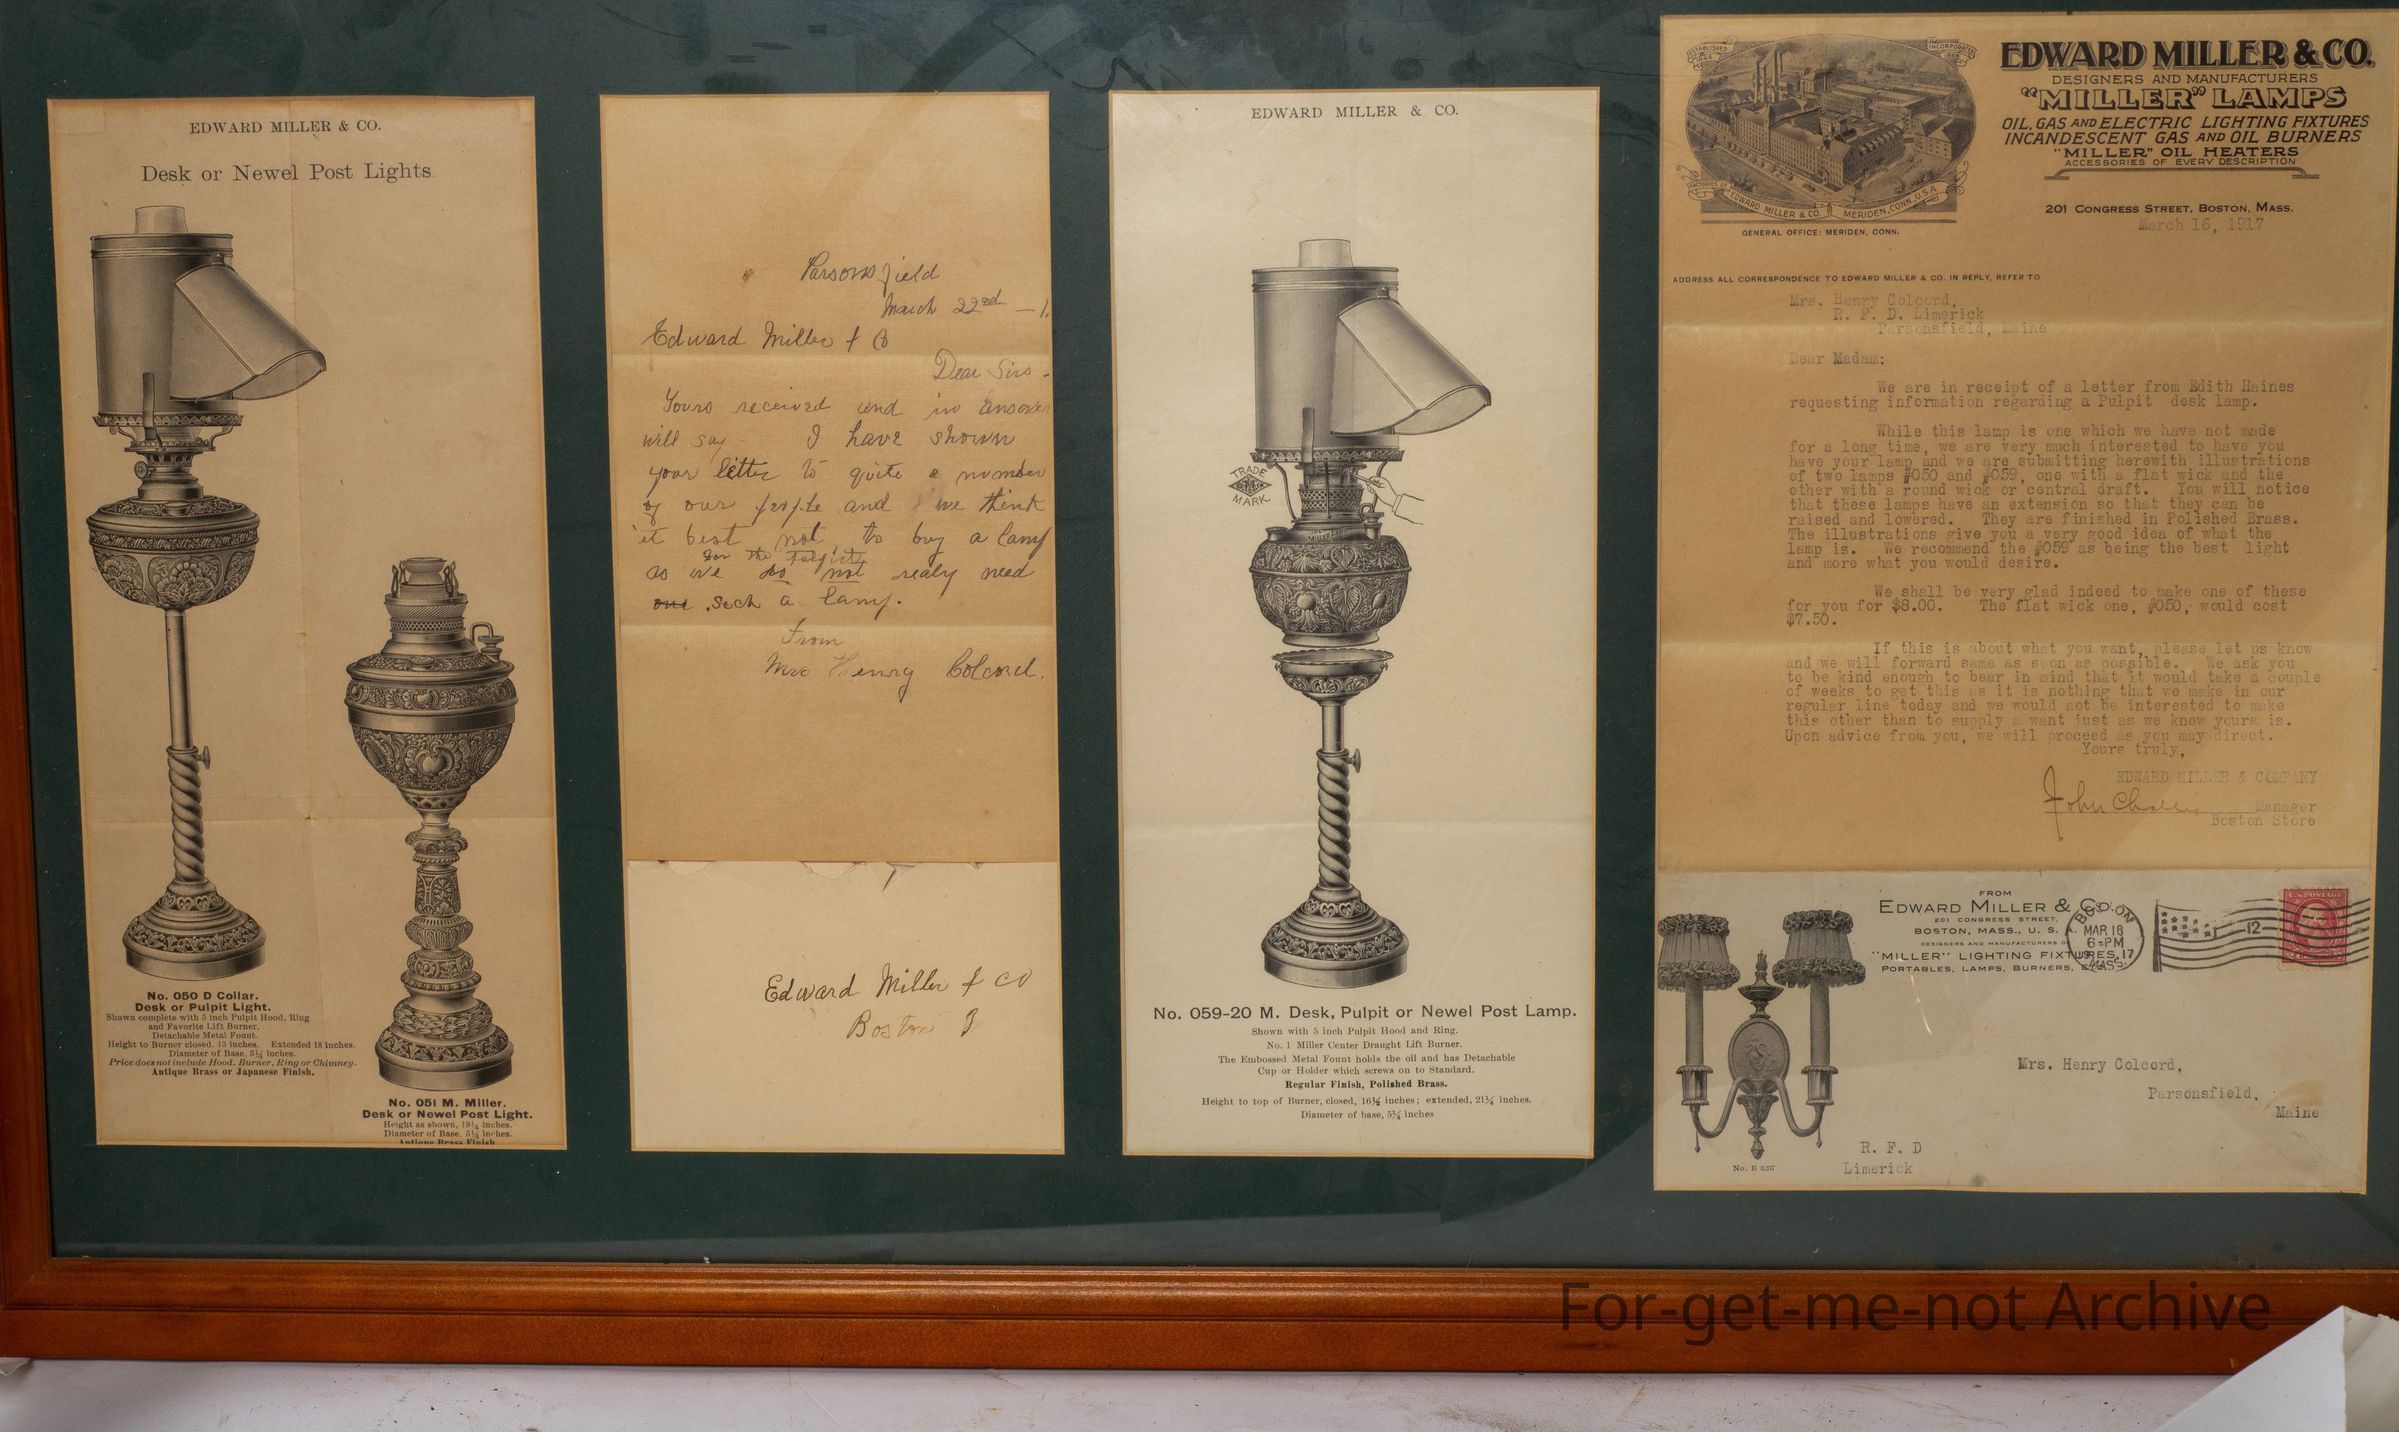 EDWARD MILLER & CO.
Desk or Newel Post Lights.
No. 050 D Collar.
Desk or Pulpit Light.
Shown complete with 5 inch Pulpit Hood, Ring
and Favorite Lift Burner,
Detachable Metal Fount.
Height to Burner closed, 13 inches. Extended 18 inches.
Diameter of Base, 5¼ inches.
Price does not include Hood, Burner, Ring or Chimney.
Antique Brass or Japanese Finish.
No. 051 M. Miller.
Desk or Newel Post Light.
Height as shown, 19¼ inches.
Diameter of Base, 5¼ inches.
Antique Brass Finish.
Parsonsfield
March 22nd - 1
Edward Miller & Co
Dear Sirs -
Yours received and in answer
will say I have shown
your letter to quite a number
of our people and we think
it best not to buy a lamp
for the
as we do not realy need
one such a lamp.
From
Mrs Henry Colcord.
Edward Miller & Co
Boston
EDWARD MILLER & CO.
TRADE
MARK.
No. 059-20 M. Desk, Pulpit or Newel Post Lamp.
Shown with 5 inch Pulpit Hood and Ring.
No. 1 Miller Center Draught Lift Burner.
The Embossed Metal Fount holds the oil and has Detachable
Cup or Holder which screws on to Standard.
Regular Finish, Polished Brass.
Height to top of Burner, closed, 16½ inches; extended, 21¼ inches.
Diameter of base, 5¼ inches
ESTABLISHED
1844
INCORPORATED
1866
FACTORIES OF EDWARD MILLER & CO. MERIDEN, CONN, U.S.A.
GENERAL OFFICE: MERIDEN, CONN.
EDWARD MILLER & CO.
DESIGNERS AND MANUFACTURERS
"MILLER" LAMPS
OIL, GAS AND ELECTRIC LIGHTING FIXTURES
INCANDESCENT GAS AND OIL BURNERS
"MILLER" OIL HEATERS
ACCESSORIES OF EVERY DESCRIPTION
201 CONGRESS STREET, BOSTON, MASS.
March 16, 1917
ADDRESS ALL CORRESPONDENCE TO EDWARD MILLER & CO. IN REPLY, REFER TO
Mrs. Henry Colcord,
R. F. D. Limerick
Parsonsfield, Maine
Dear Madam:
We are in receipt of a letter from Edith Haines
requesting information regarding a Pulpit desk lamp.
While this lamp is one which we have not made
for a long time, we are very much interested to have you
have your lamp and we are submitting herewith illustrations
of two lamps #050 and #059, one with a flat wick and the
other with a round wick or central draft. You will notice
that these lamps have an extension so that they can be
raised and lowered. They are finished in Polished Brass.
The illustrations give you a very good idea of what the
lamp is. We recommend the #059 as being the best light
and more what you would desire.
We shall be very glad indeed to make one of these
for you for $8.00. The flat wick one, #050, would cost
$7.50.
If this is about what you want, please let us know
and we will forward same as soon as possible. We ask you
to be kind enough to bear in mind that it would take a couple
of weeks to get this as it is nothing that we make in our
regular line today and we would not be interested to make
this other than to supply a want just as we know yours is.
Upon advice from you, we will proceed as you may direct.
Yours truly,
EDWARD MILLER & COMPANY
John Manager
Boston Store
FROM
EDWARD MILLER & CO.
201 CONGRESS STREET,
BOSTON, MASS., U. S. A.
DESIGNERS AND MANUFACTURERS OF
"MILLER" LIGHTING FIXTURES,
PORTABLES, LAMPS, BURNERS, ETC.
BOSTON
MAR 16
6-PM
17
MASS.
12
U.S. POSTAGE
Mrs. Henry Colcord,
Parsonsfield,
Maine
R. F. D
Limerick
For-get-me-not Archive